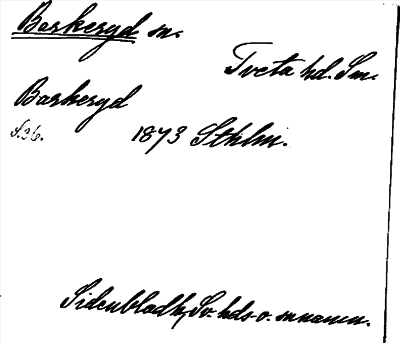 Barkeryd sn.
Tveta hd. Sm.
Barkeryd
S. 36. 1873 Sthlm.
Sidenbladh, Sv. hds- o. snnamn.